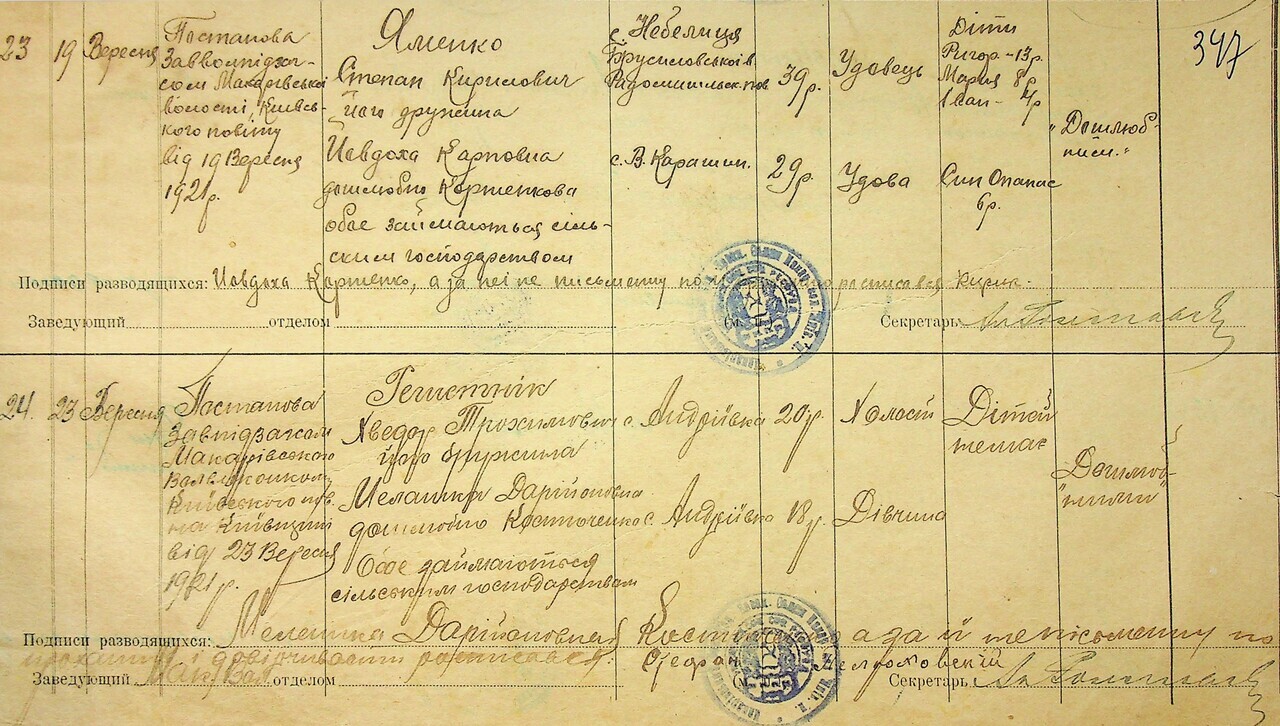 23 19 Вересня
Постанова
Завволпідза-
сом Макарівської
Волості, Київсь-
кого повіту
від 19 Вересня
1921 р.
Яменко
Степан Кирилович
Його дружина
Йавдоха Карповна
дошлюбно Корженкова
обоє займаються сіль-
ским господарством
с. Небелиця
Брусиловської в.
Радомишльск. пов
39 р.
Удовець
Діти
Ригор - 13 р.
Мария 8 р
Іван - 4 р
"Дошлюб-
ним."
347
с. В. Карашин.
29 р.
Удова
Син Опанас
6 р.
Подписи разводящихся: Йавдоха Корженко, а за неї не письменну по росписався Кирик.
Заведующий отделом
Секретарь
24. 23 Вересня
Постанова
Завпідзагсом
Макарівського
Волвиконкому
Київського пов.
на Київщині
від 23 Вересня
1921 р.
Хведор Трохимович
його дружина
Мелашка Дарийоновна
дошлюбно Костюченко
Обоє займаються
сільським господарством
с. Андріївка
20 р.
Холост
Дітей
немає
"Дошлюб-
ними"
с. Андріївка
18 р.
Дівчина
Подписи разводящихся: Мелашка Дарийоновная а за й неписьменну по
проханню і довірчивости росписався
Заведующий отделом
Секретарь